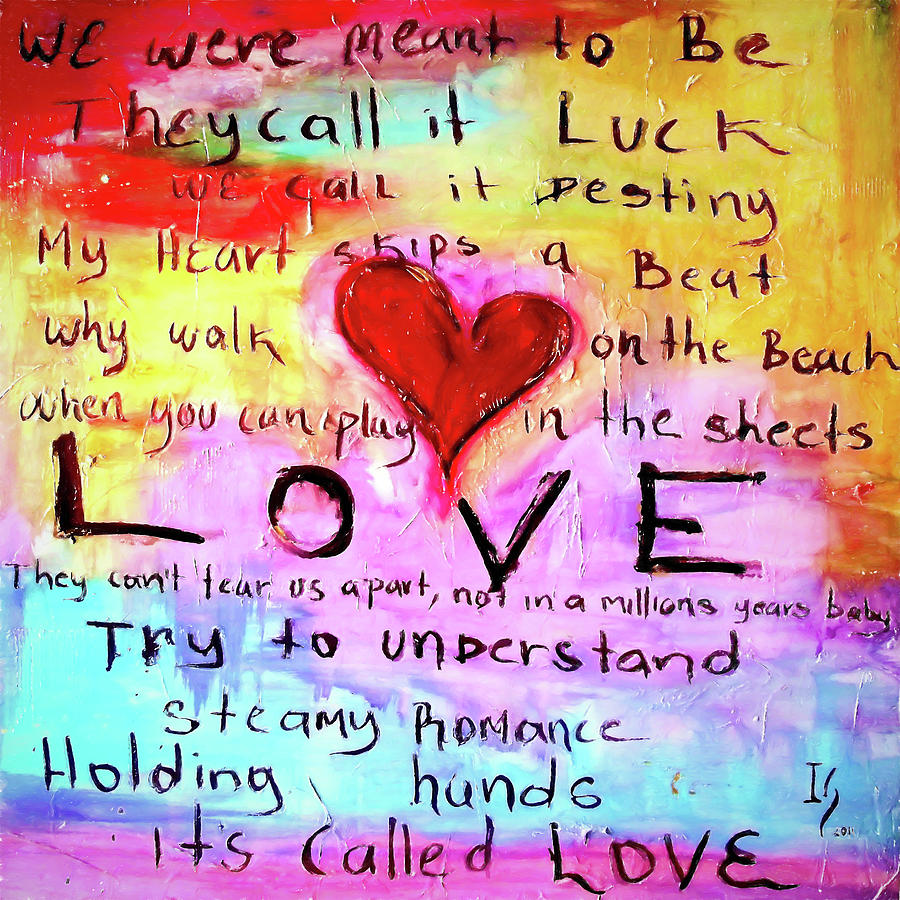 WE were meant to Be
They call it LUCK
WE CALL it Destiny
My Heart skips a Beat
why walk on the Beach
when you can play in the sheets
LOVE
They can't tear us apart, not in a millions years baby
Try to understand
Steamy Romance
Holding hands
It's called LOVE